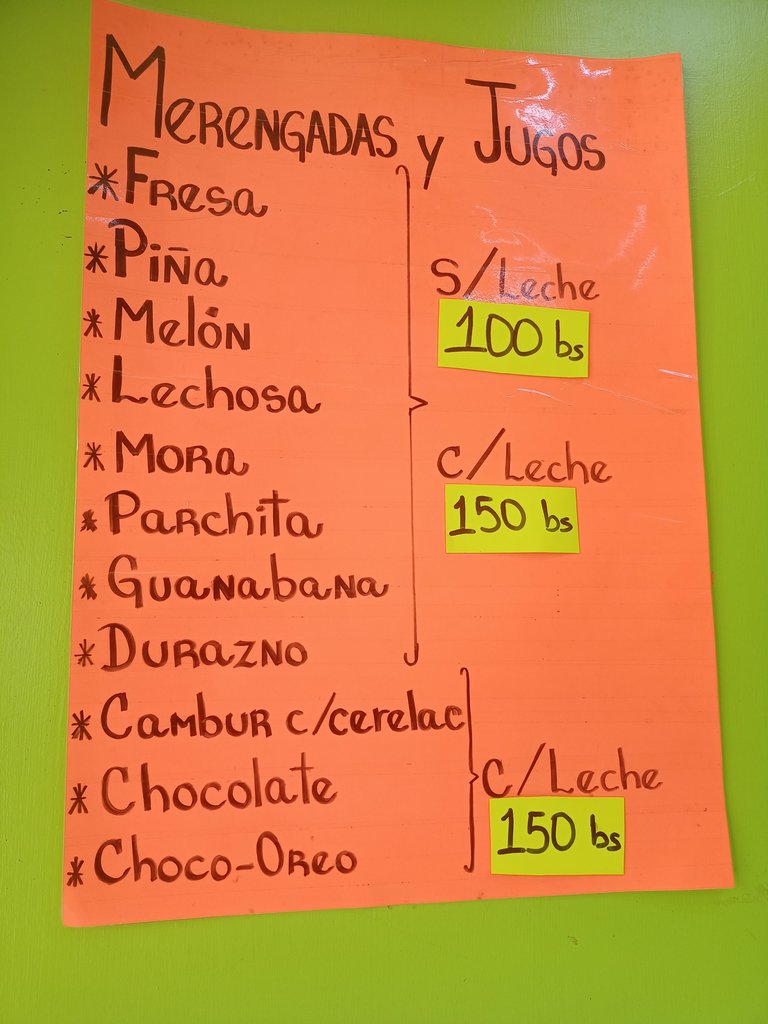 Merengadas y Jugos
* Fresa
* Piña
* Melón
* Lechosa
* Mora
* Parchita
* Guanabana
* Durazno
S/Leche
100 bs
C/Leche
150 bs
* Cambur c/cerelac
* Chocolate
* Choco-Oreo
C/Leche
150 bs